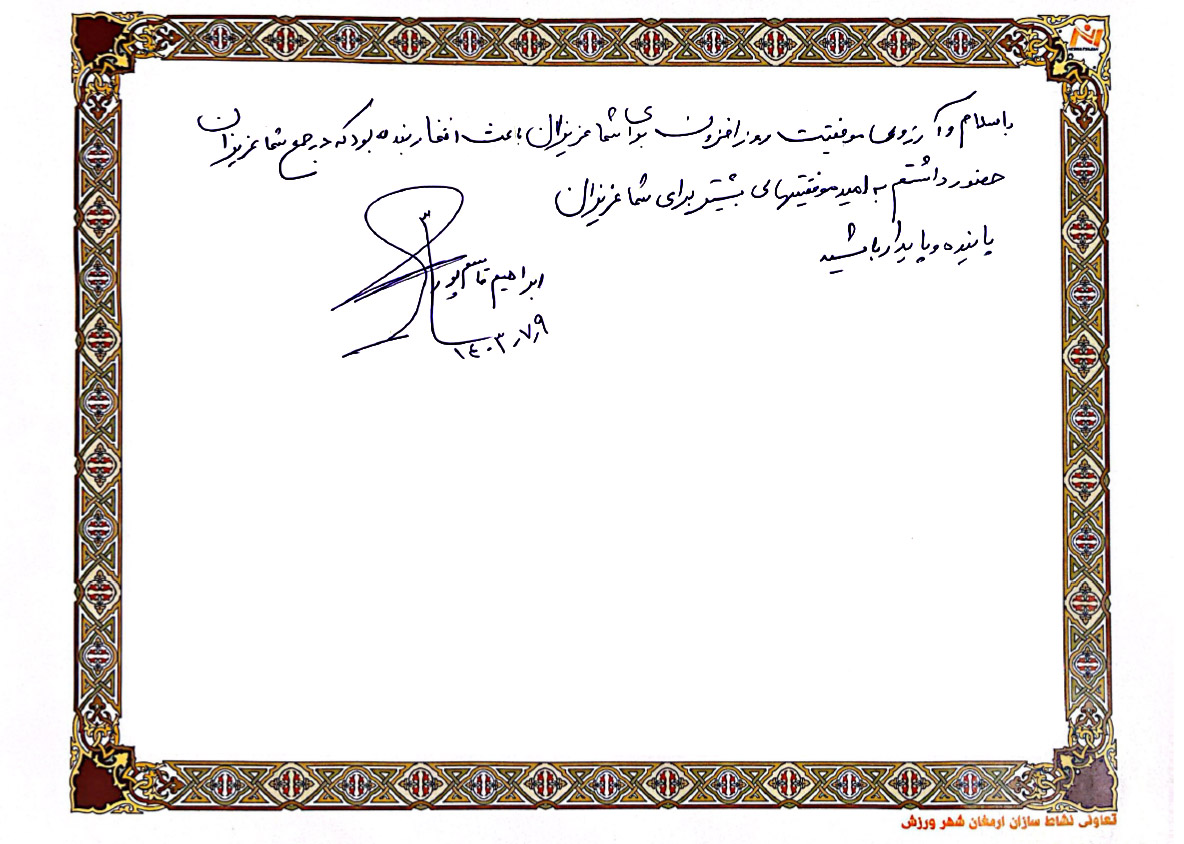 با سلام و آرزوی موفقیت روز افزون برای شما عزیزان باعث افتخار بنده بود که در جمع شما عزیزان
حضور داشتم به امید موفقیتهای بیشتر برای شما عزیزان
پاینده و پایدار باشید
ابراهیم قاسم پور
۱۴۰۳٫۷٫۹
تعاونی نشاط سازان ارمغان شهر ورزش